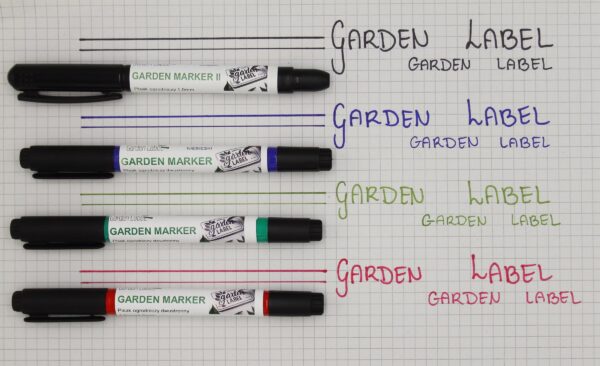 GARDEN LABEL
GARDEN LABEL
GARDEN MARKER II
Pisak ogrodniczy
garden
LABEL
GARDEN LABEL
GARDEN LABEL
GARDEN MARKER
garden
LABEL
GARDEN LABEL
GARDEN LABEL
GARDEN MARKER
Pisak ogrodniczy dwustronny
garden
LABEL
GARDEN LABEL
GARDEN LABEL
GARDEN MARKER
Pisak ogrodniczy dwustronny
garden
LABEL